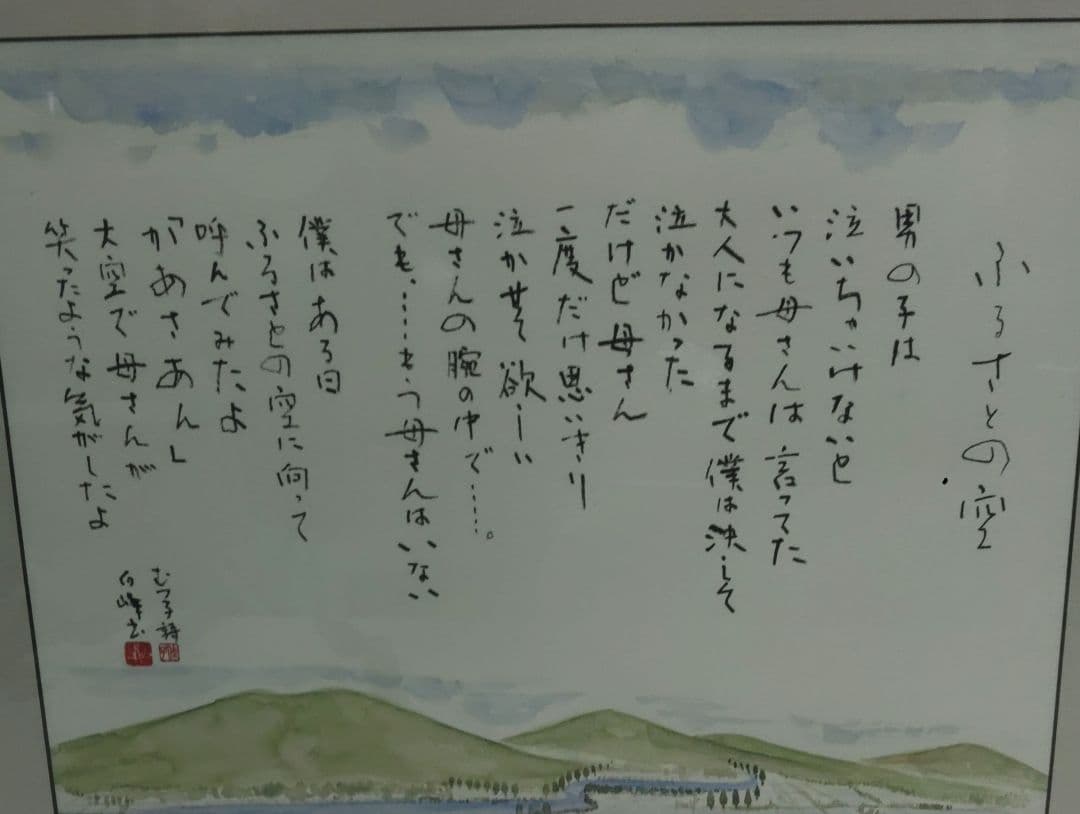 ふるさとの空
男の子は
泣いちゃいけないと
いつも母さんは言ってた
大人になるまで僕は決して
泣かなかった
だけど母さん
一度だけ思いきり
泣かせて欲しい
母さんの腕の中で……。
でも、……もう母さんはいない
僕はある日
ふるさとの空に向って
呼んでみたよ
「かあさあん」
大空で母さんが
笑ったような気がしたよ
むつ子詩